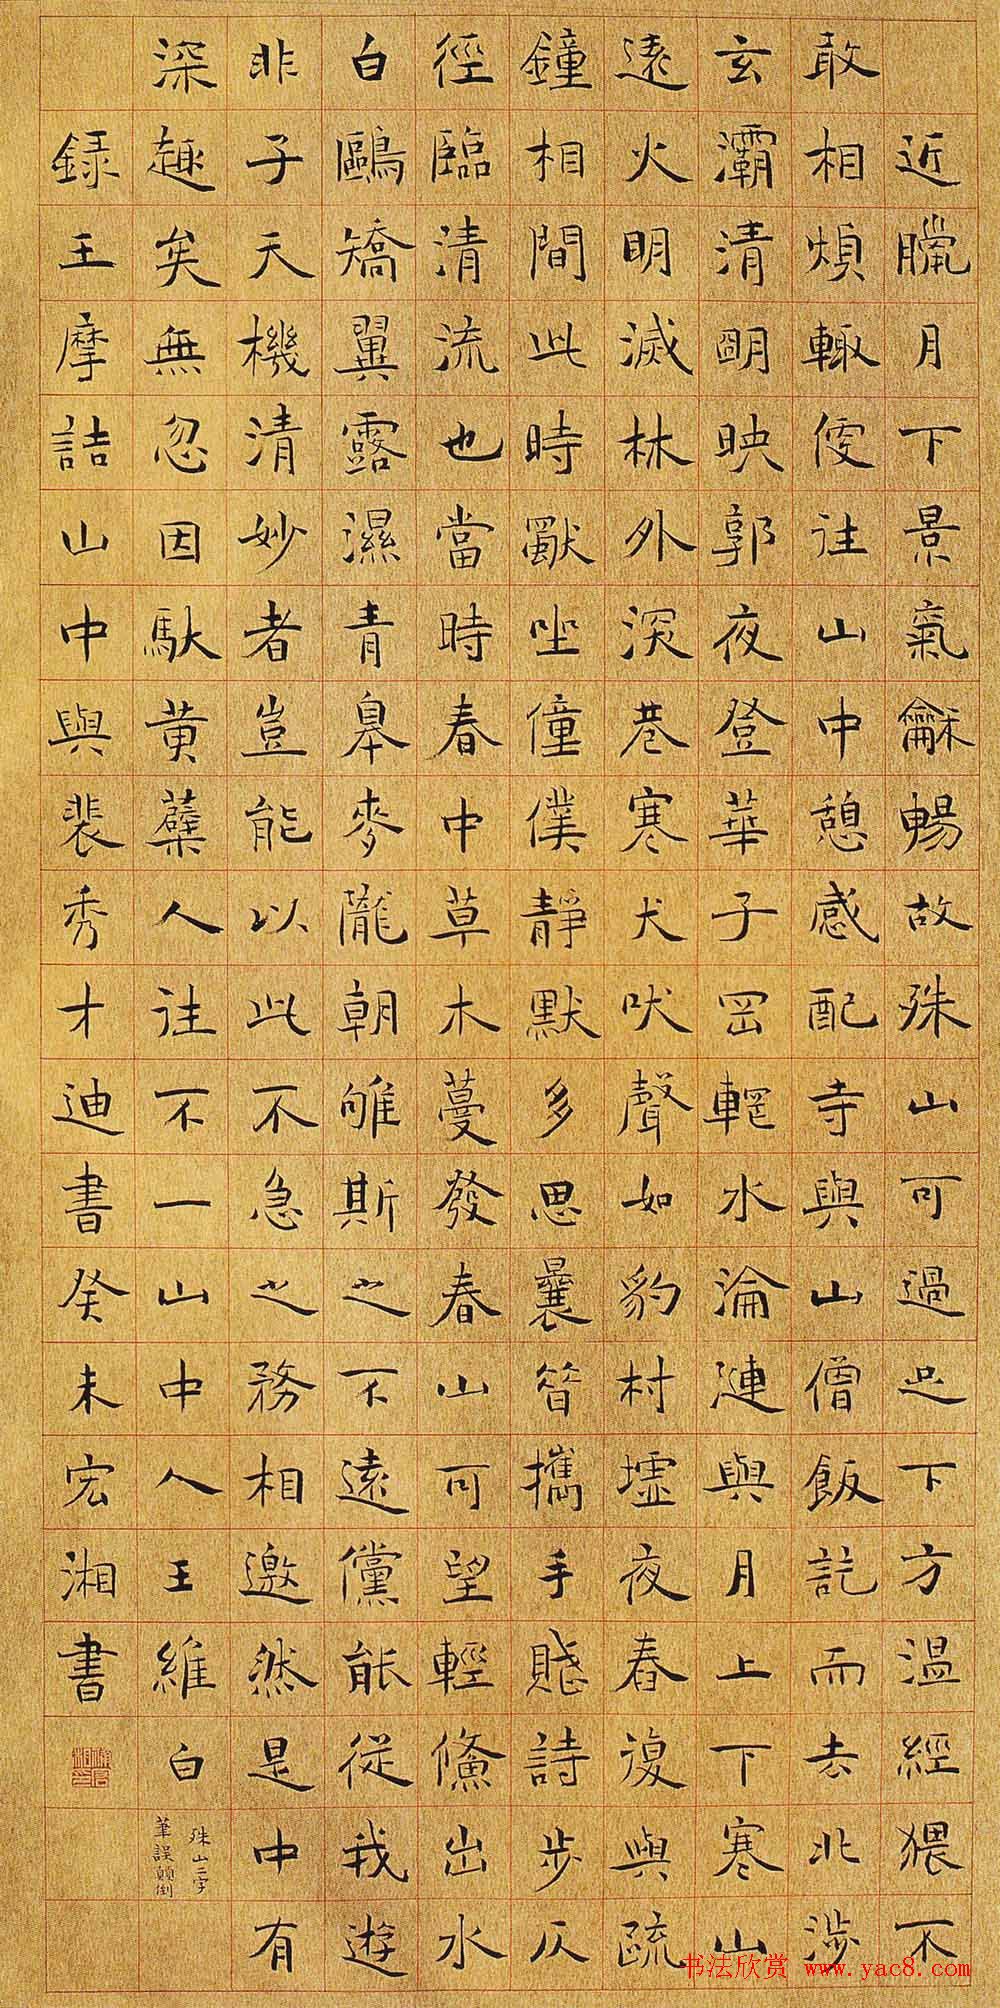 近臘月下景氣龢暢故殊山可過足下方温經猥不
敢相煩輙便往山中憩感配寺與山僧飯訖而去北涉
玄灞清朙映郭夜登華子岡輞水淪漣與月上下寒山
遠火明滅林外深巷寒犬吠聲如豹村墟夜舂復與疏
鐘相間此時獸坐僮僕靜默多思曩昔攜手賦詩步仄
徑臨清流也當時春中草木蔓發春山可望輕鯈出水
白鷗矯翼露濕青皋麥隴朝雊斯之不遠儻能從我遊
非子天機清妙者豈能以此不急之務相邀然是中有
深趣矣無忽因馱黃蘗人往不一山中人王維白
殊山二字
筆誤顛倒
録王摩詰山中與裴秀才迪書癸未宏湘書
书法欣赏 www.yac8.com